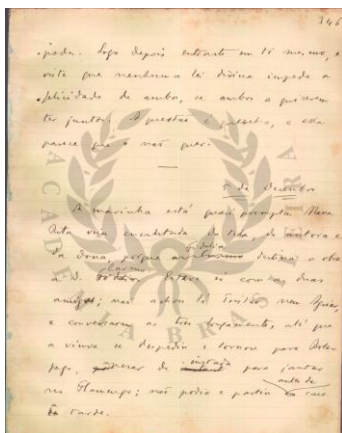 346
pador. Logo depois entraste em ti mesmo, e
viste que nenhuma lei divina impede a
felicidade de ambos, se ambos a quiserem
ter juntos. A questão é querê-la, e ella
parece que a não quer.
5 de Dezembro
A marinha está quasi prompta. Mana
Rita veiu encantada da tela, da autora e
da dona, porque Fidelia destina a obra
a D. Carmo. Esteve só com as duas
amigas; não achou lá Tristão nem Aguiar,
e conversaram as tres longamente, até que
a viuva se despediu e tornou para Bota-
fogo, apesar de instada para jantar
no Flamengo; não podia e partiu antes de
tarde.
ACADEMIA BRASI